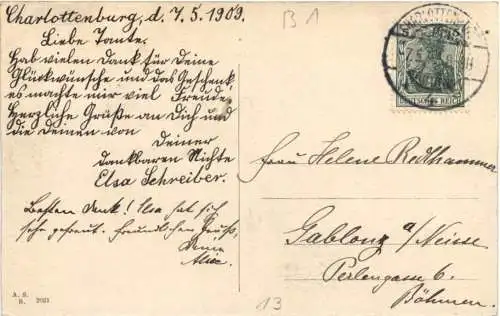 Charlottenburg, d. 7.5.1909.
Liebe Tante.
Hab vielen Dank für Deine
Glückwünsche und das Geschenk
es machte mir viel Freude.
Herzliche Grüße an Dich und
die Deinen von
Deiner
dankbaren Nichte
Elsa Schreiber.
Besten Dank! Elsa hat sich
sehr gefreut. Freundlichen Gruss,
Deine
Alice.
A. S.
B. 2021
B1
CHARLOTTENBURG
DEUTSCHES REICH
Frau Helene Redlhammer
Gablonz a/Neisse
Perlengasse 6.
Böhmen.
13